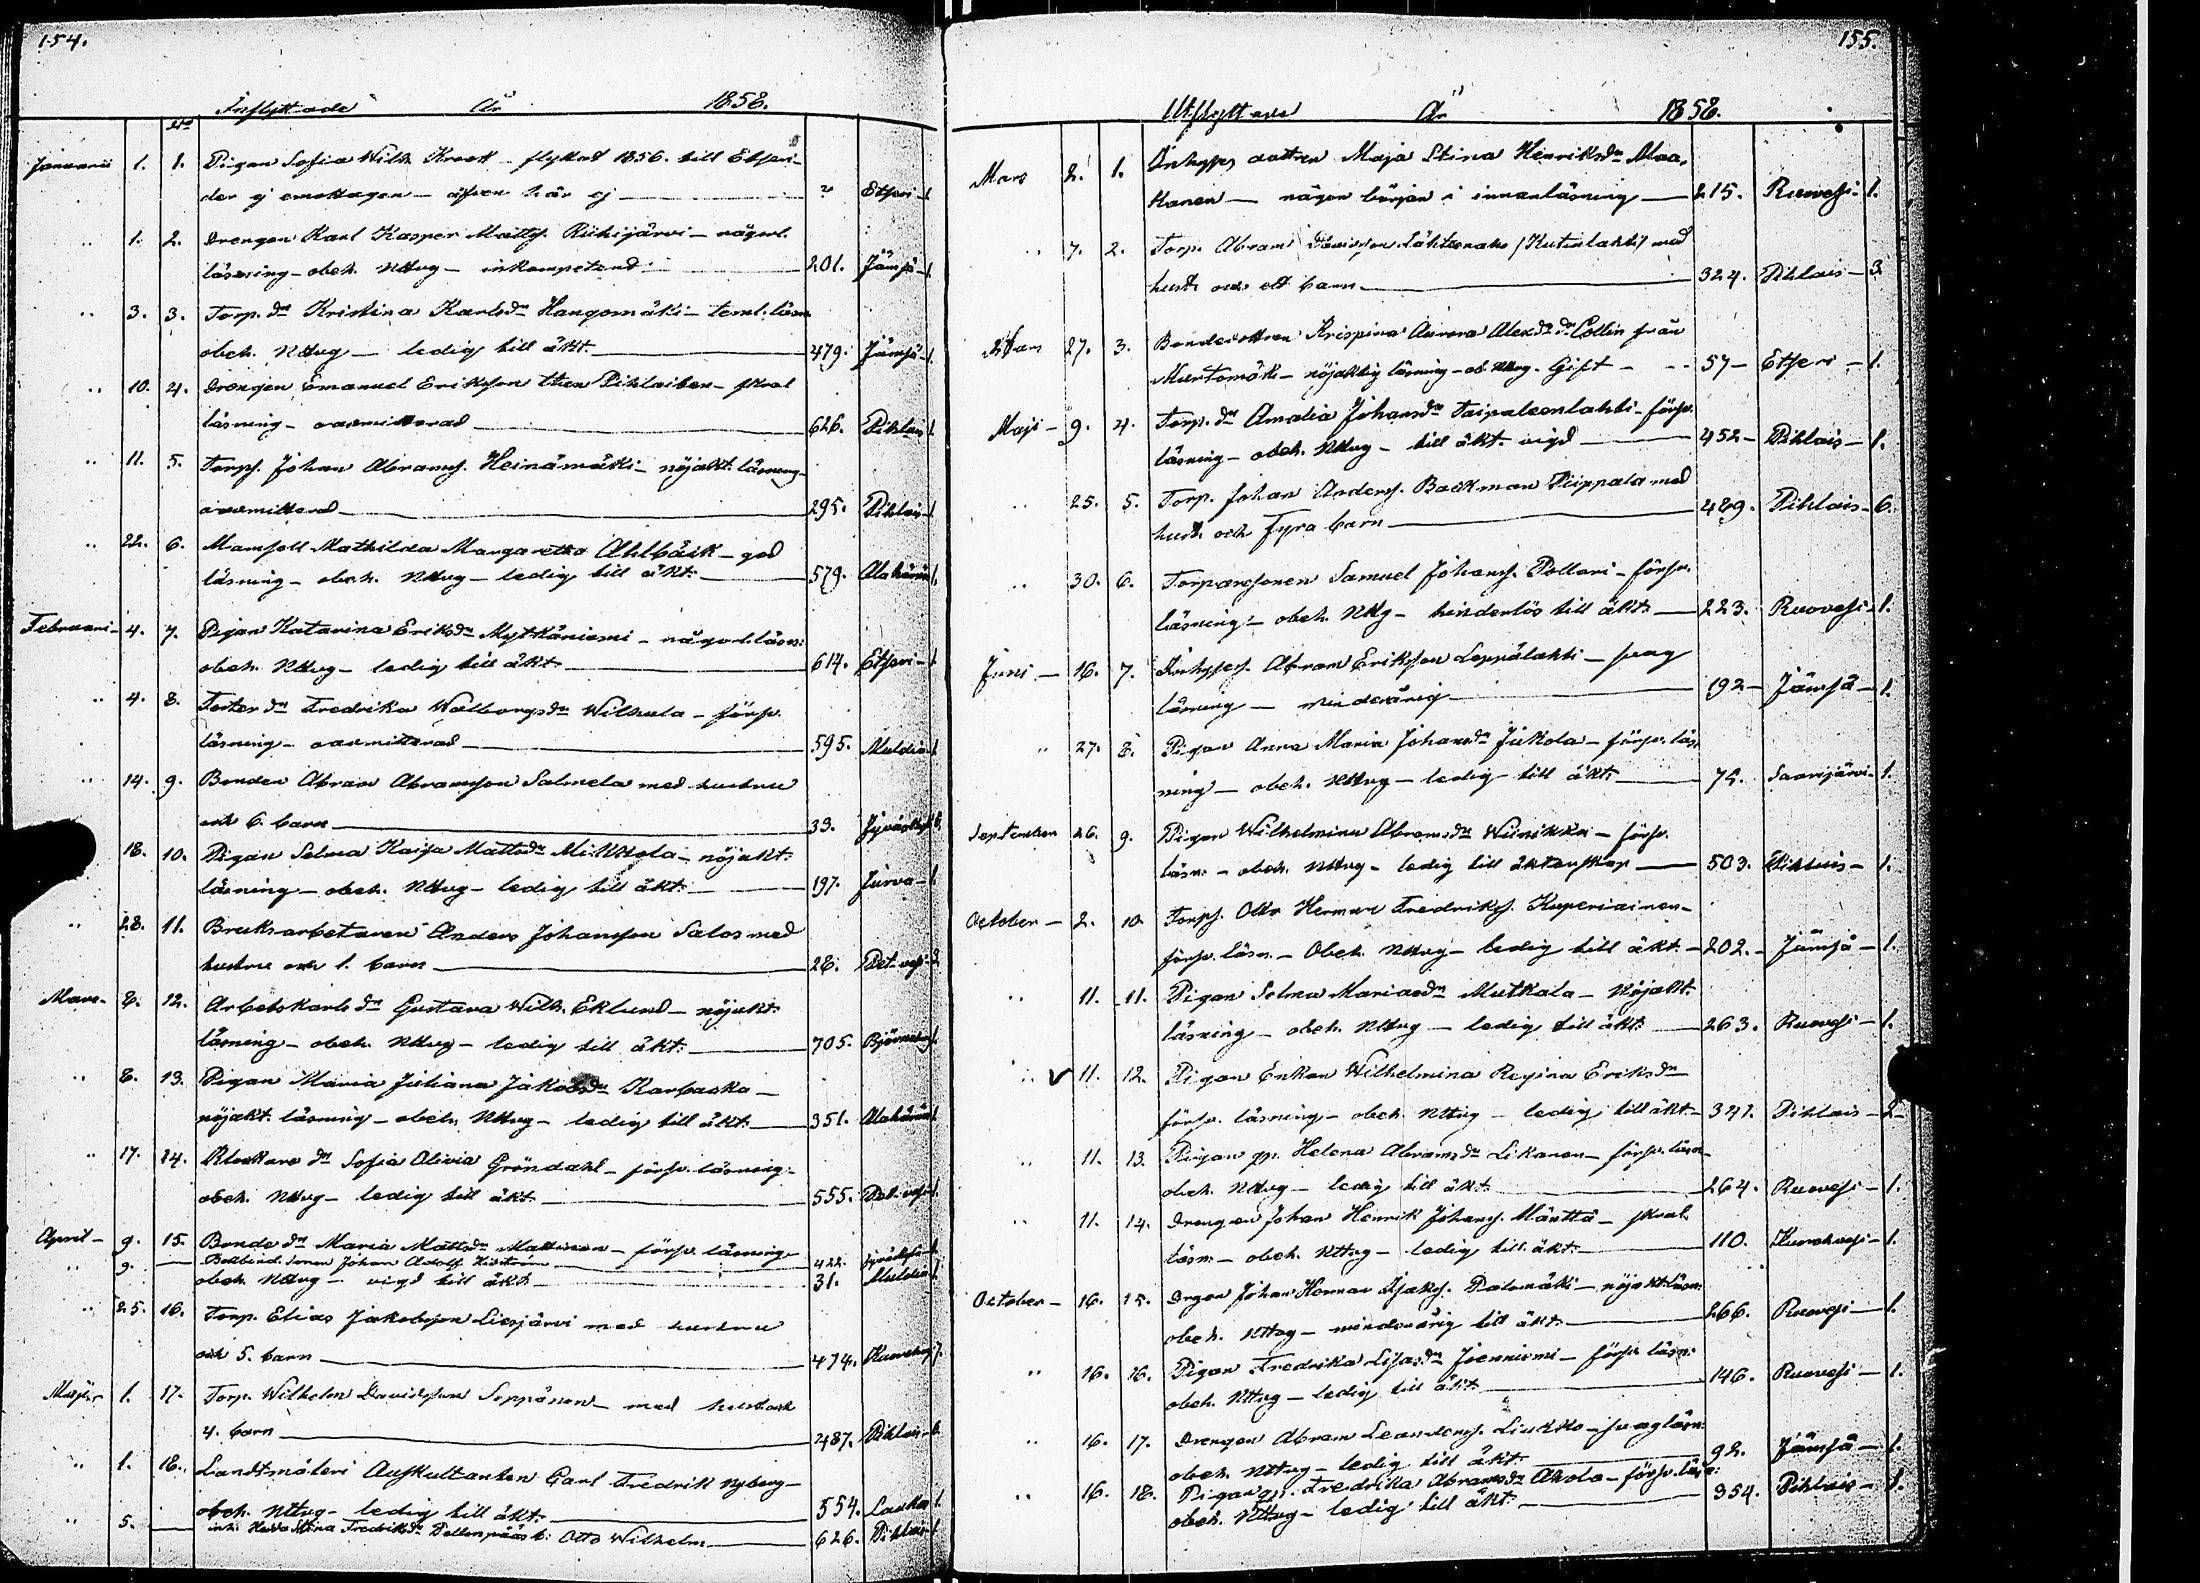 154.
Inflyttade År 1858.
No
Januarii 1. 1. Pigan Sofia Wilh. Kroot flyttad 1856. till Etseri-
der ej emottagen - äfven här ej ? Etseri - 1
" 1. 2. Drengen Karl Kasper Matts. Riihijärvi - någorl.
läsning - obeh. Nttvg - inkompetend 201. Jämsä - 1.
" 3. 3. Torp. dr Kristina Karlsdr Hangomäki - teml. läsn
obeh. Nttvg - ledig till äkt. 479. Jämsä - 1.
" 10. 4. Drengen Emanuel Eriksson Pihlaiben - skral
läsning - oadmitterad 626. Pihlais 1.
" 11. 5. Torps. Johan Abrams. Heinämäki - nöjakt. läsning -
oadmitterad 295. Pihlais 1.
" 22. 6. Mamsell Mathilda Margaretha Ahlbäck - god
läsning - obeh. Nttvg - ledig till äkt. 579. Alahärmä 1.
Februari - 4. 7. Pigan Katarina Eriksdr Mytkäniemi - någorl. läsn:
obeh. Nttvg - ledig till äkt 614. Etseri - 1.
" 4. 8. Foster dr Fredrika Walborgsdr Wilhula - försv.
läsning - oadmitterad 595. Multia 1.
" 14. 9. Bonden Abram Abramsson Salmela med hustru
och 6. barn 33. Jyväskylä 8.
18. 10. Pigan Selma Kaisa Mattsdr Mikkola - nöjakt.
läsning - obeh. Nttvg - ledig till äkt. 197. Jurva - 1.
" 28. 11. Bruksarbetaren Anders Johansson Salos med
hustru och 1. barn 28. Pet. vesi 3.
Mars - 8. 12. Arbetskarls dr Gustava Wilh. Eklund - nöjakt.
läsning - obeh. Nttvg - ledig till äkt. 705. Björneborg 1.
" 8. 13. Pigan Maria Juliana Jakobsdr Karbaska -
nöjakt. läsning - obeh. Nttvg - ledig till äkt. 351. Alahärmä 1.
" 17. 14. Klockare dr Sofia Olivia Gröndahl - försv. läsning -
obeh. Nttvg - ledig till äkt 555. Pet. vesi 1.
April - 9. 15. Bonde dr Maria Mattsdr Mattinen - försv. läsning - 422. Jyväskylä 1.
" 9. - Bokbind. sonen Johan Adolf
obeh. Nttvg - vigd till äkt 31. Multia 1.
" 25. 16. Torp. Elias Jakobsson Liesjärvi med hustru
och 5. barn 474. 7.
Majus 1. 17. Torp. Wilhelm Davidsson Seppänen - med hust. och
4. barn 487. Pihlais - 6.
" 1. 18. Landtmäteri Auskultanten Carl Fredrik Nyberg -
obeh. Nttvg - ledig till äkt. 554. Laukas 1.
" 5. - Stina Fredriksdr b: Otto Wilhelm 626. Pihlais 1.
155.
Utflyttade År 1858.
Mars 2. 1. Inhyses dottren Maja Stina Henriksdr Maa,
kanen - någon början i innanläsning 215. Ruovesi - 1.
" 7. 2. Torp. Abram Davidsson Lähteenaho (Kutulahti) med
hustr och ett barn 324. Pihlais - 3.
Mars 27. 3. Bondedottren Krispina Aurora Alexdr dr Collin från
Murtomäki - nöjaktig läsning - ob Nttvg. Gift 57 - Etseri - 1.
Maji - 9. 4. Torp. dr Amalia Johansdr Taipaleenlahti - försv.
läsning - obeh. Nttvg - till äkt. vigd 452 - Pihlais - 1.
" 25. 5. Torp. Johan Anders. Backman Piippala med
hustr. och Fyra barn 489. Pihlais - 6.
" 30. 6. Torparesonen Samuel Johans. Pollari - försv.
läsning - obeh. Nttvg - hinderlös till äkt. 223. Ruovesi - 1.
Juni - 16. 7. Inhyses. Abram Eriksson Leppälahti - svag
läsning - minderårig 192 - Jämsä - 1.
" 27. 8. Pigan Anna Maria Johansdr Jukola - försv. läs,
ning - obeh. Nttvg - ledig till äkt. 75. Saarijärvi - 1.
September 26. 9. Pigan Wilhelmina Abramsdr Wiinikka - försv.
läsn. - obeh. Nttvg - ledig till äktenskap 503. Pihlais - 1.
October - 2. 10 Torps. Otto Herman Fredriks. Kuperiainen -
försv. läsn. - Obeh. Nttvg - ledig till äkt. - 202. - Jämsä - 1.
" 11. 11. Pigan Selma Mariasdr Mutkala - Nöjakt.
läsning - obeh. Nttvg - ledig till äkt. 263. Ruovesi - 1.
" v 11. 12. Pigan Enkan Wilhelmina Regina Eriksdr
försv. läsning - obeh. Nttvg - ledig till äkt - 341. Pihlais - 2 -
" 11. 13. Pigan Helena Abramsdr Likanen - försv. läsn -
obeh. Nttvg - ledig till äkt. 264. Ruovesi - 1.
" 11. 14. Drengen Johan Henrik Johans. Mänttä - skral
läsn. - obeh. Nttvg - ledig till äkt. 110. Kuorehvesi - 1.
October - 16. 15. Drgen Johan Herman Isaks. Palomäki - nöjakt. läsn:
obeh. Nttvg - minderårig till äkt. 266. Ruovesi - 1.
" 16. 16. Pigan Fredrika Lisasdr Joenniemi - försv. läsn:
obeh. Nttvg - ledig till äkt. 146. Ruovesi - 1.
" 16. 17. Drengen Abram Leanders. Liukko - svag läsn:
obeh. Nttvg - ledig till äkt. 92. Jämsä - 1.
" 16. 18. Pigan Fredrika Abramsdr Ahola - försv. läsn:
obeh. Nttvg - ledig till äkt. 354. Pihlais - 1.